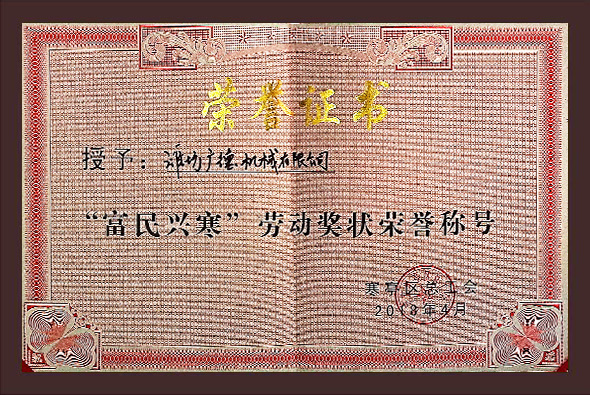 荣誉证书
授予：潍坊广德机械有限公司
“富民兴寒”劳动奖状荣誉称号
寒亭区总工会
2018年4月